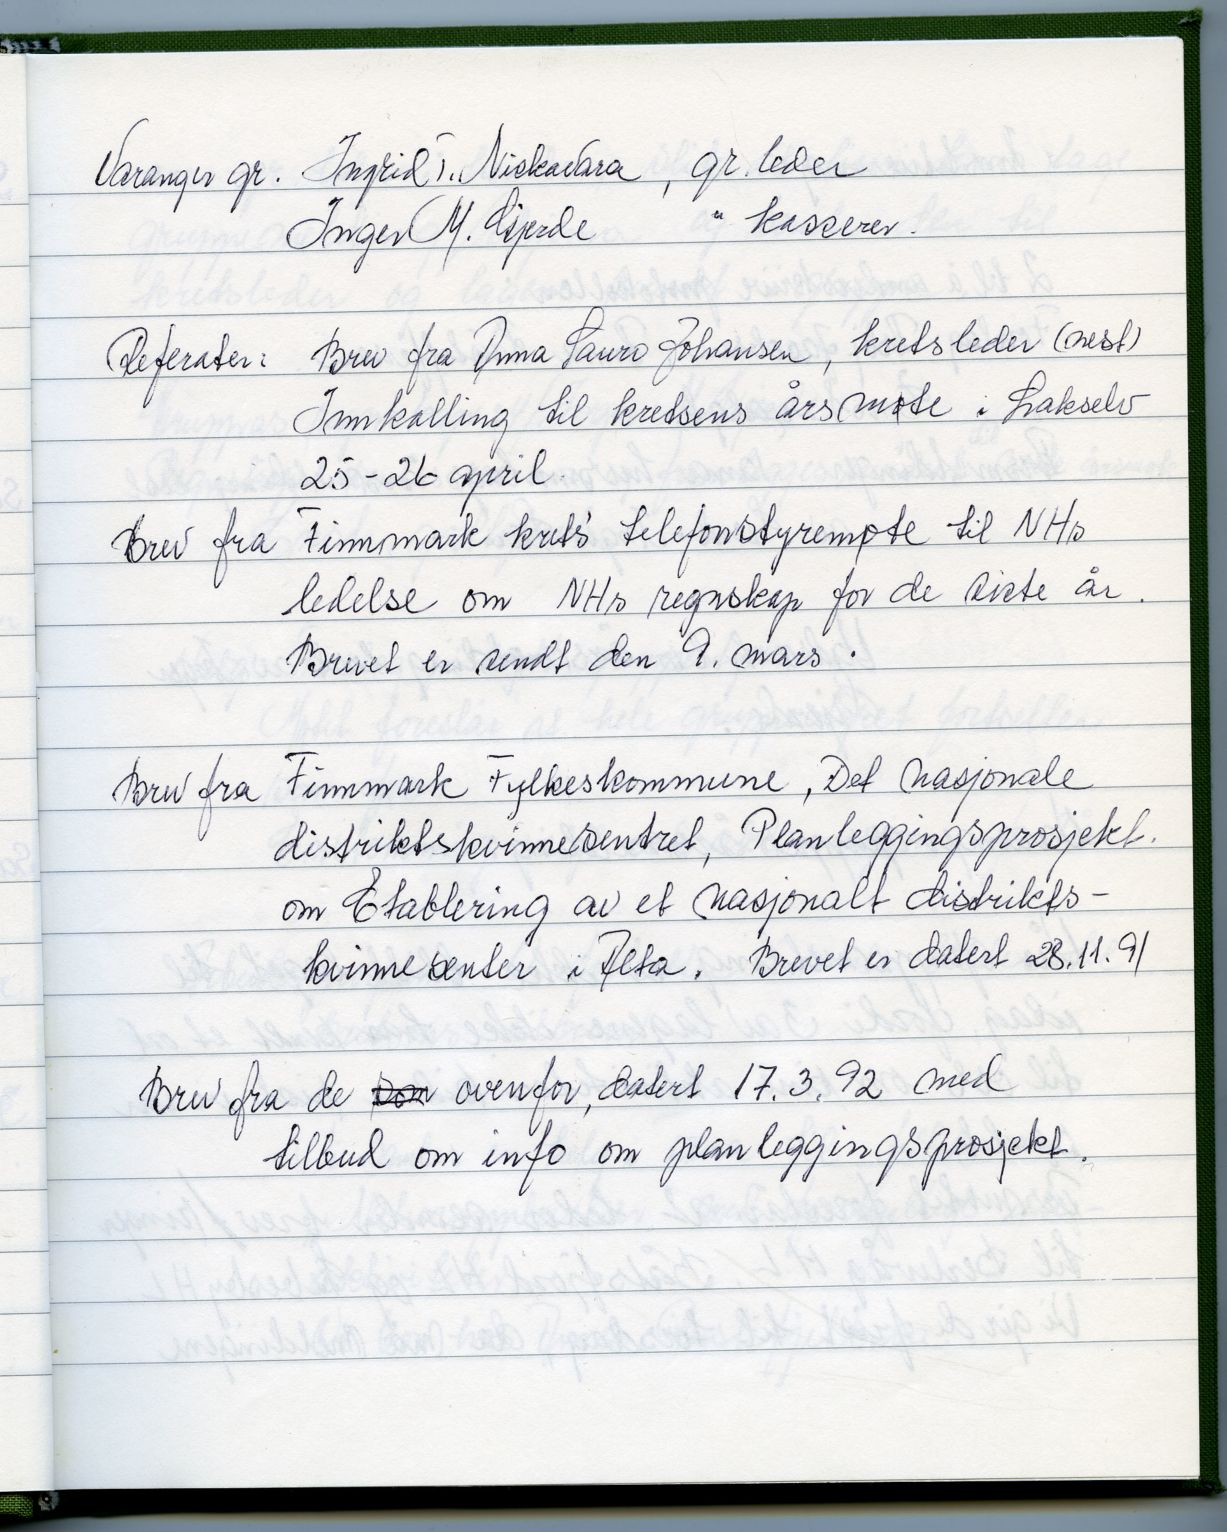 Varanger gr. Ingrid I. Niskavara, gr. leder
Inger M. Gjerde " kasserer.
Referater: Brev fra Anna Lauro Johansen, kretsleder (nest)
Innkalling til kretsens årsmøte i Lakselv
25-26 april.
Brev fra Finnmark krets' telefonstyremøte til NHs
ledelse om NHs regnskap for de siste år.
Brevet er sendt den 9. mars.
Brev fra Finnmark Fylkeskommune, Det nasjonale
distriktskvinnesentret, Planleggingsprosjekt.
om Etablering av et nasjonalt distrikts-
kvinnesenter i Alta. Brevet er datert 28.11.91
Brev fra de ovenfor, datert 17.3.92 med
tilbud om info om planleggingsprosjekt.